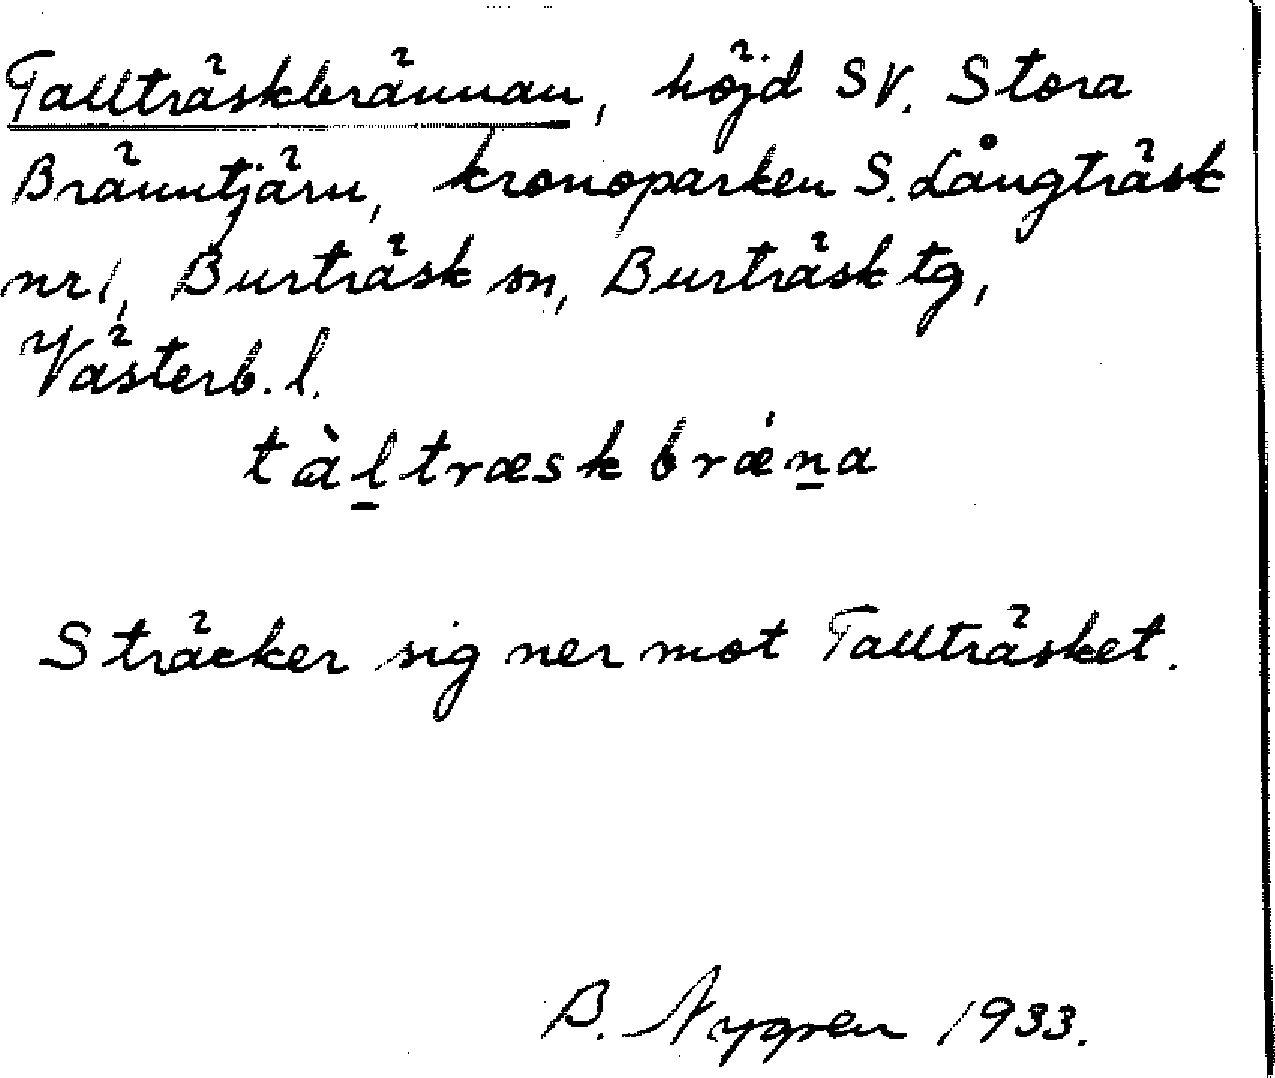 Tallträskbrännan, höjd SV. Stora
Bränntjärn, kronoparken S. Långträsk
nr 1, Burträsk sn, Burträsk tg,
Västerb. l.
tàl̲træskbrǽn̲a
Sträcker sig ner mot Tallträsket.
B. Nygren 1933.